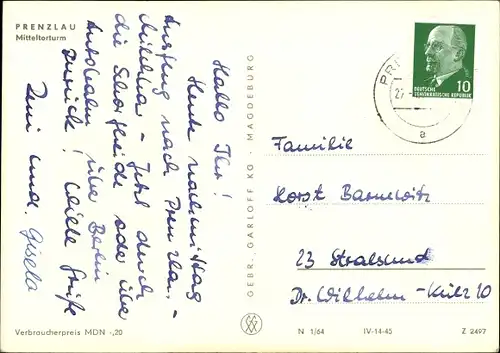 PRENZLAU
Mitteltorturm
Hallo Ihr!
Heute nachmittag
Ausflug nach Prenzlau, -
- Jetzt durch
die Schorfheide oder über
Autobahn über Berlin
zurück! Viele Grüße
und Gisela
GEBR. GARLOFF KG · MAGDEBURG
DEUTSCHE
DEMOKRATISCHE REPUBLIK
10
PR
27
a
Familie
Horst
23 Stralsund
Dr. Wilhelm-Külz 10
Verbraucherpreis MDN -,20
N 1/64
IV-14-45
Z 2497